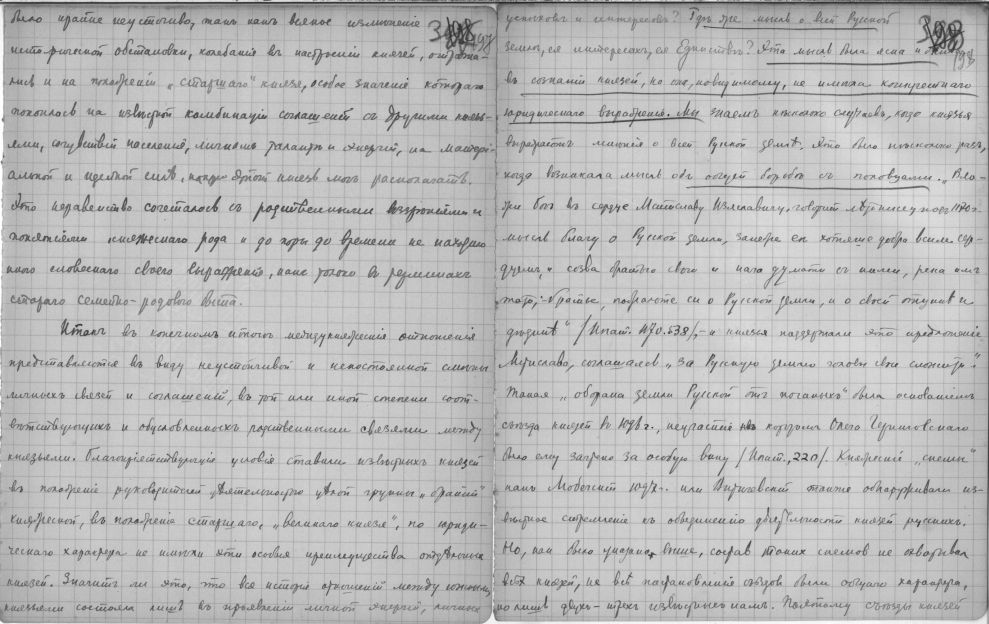 было крайне неустойчиво, такъ какъ всякое измѣненіе
исторической обстановки, колебанія въ настроеніи князей, отража-
лись и на положеніи „старшаго" князя, особое значеніе котораго
покоилось на извѣстной комбинаціи соглашеній съ другими князь-
ями, сочувствіи населенія, личномъ талантѣ и энергіи, на матері-
альной и идейной силѣ, какою этотъ князь могъ располагать.
Это неравенство сочеталось съ родственными воззрѣніями и
понятіями княжескаго рода и до поры до времени не находило
иного словеснаго своего выраженія, какъ только въ терминахъ
стараго семейно-родового быта.
Итакъ въ конечномъ итогѣ междукняжескія отношенія
представляются въ виду неустойчивой и непостоянной системы
личныхъ связей и соглашеній, въ той или иной степени соот-
вѣтствующихъ и обусловленныхъ родственными связями между
князьями. Благопріятствующія условія ставили извѣстныхъ князей
въ положеніе руководителей дѣятельностью цѣлой группы „братьи"
княжеской, въ положеніе старшаго, „великаго князя", но юриди-
ческаго характера не имѣли эти особыя преимущества отдѣльныхъ
князей. Значитъ ли это, что вся исторія отношеній между южными
князьями состояла лишь въ проявленіи личной энергіи, личныхъ
198
успѣховъ и интересовъ? Гдѣ же мысль о всей Русской
землѣ, ея интересахъ, ея единствѣ? Эта мысль была ясна и
въ сознаніи князей, но она, повидимому, не имѣла конкретнаго
юридическаго выраженія. Мы знаемъ нѣсколько случаевъ, когда князья
выражаютъ мнѣнія о всей Русской землѣ. Это было нѣсколько разъ,
когда возникала мысль объ общей борьбѣ съ половцами. „Вло-
жи богъ въ сердце Мстиславу Изяславичу, говоритъ лѣтописецъ подъ 1170 г.
мысль благу о Русской земли, занеже ея хотяше добра всимъ сер-
дцемъ, и созва братью свою и нача думати съ ними, река имъ
тако; „братье, пожальте си о Русской земли, и о своей отцинѣ и
дѣдинѣ" /Ипат. 1170.538/,– и князья поддержали это предложеніе
Мстислава, соглашаясь „за Русскую землю головы свои сложити".
Такая „оборона земли Русской отъ поганыхъ" была основаніемъ
съѣзда князей въ 1096 г., неучастіе въ которомъ Олега Черниговскаго
было ему зачтено за особую вину /Ипат., 220/. Княжескіе „снемы"
какъ Любечскій 1097 г. или Витичевскій также обнаруживали из-
вѣстное стремленіе къ объединенію дѣятельности князей русскихъ.
Но, какъ было указано выше, составъ такихъ снемовъ не охватывалъ
всѣхъ князей, не всѣ постановленія съѣздовъ были общаго характера,
но лишь двухъ-трехъ извѣстныхъ намъ. Поэтому съѣзды князей